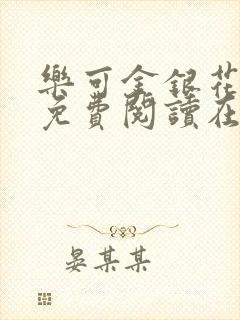 樂可金銀花
免費閱讀在
晏某某